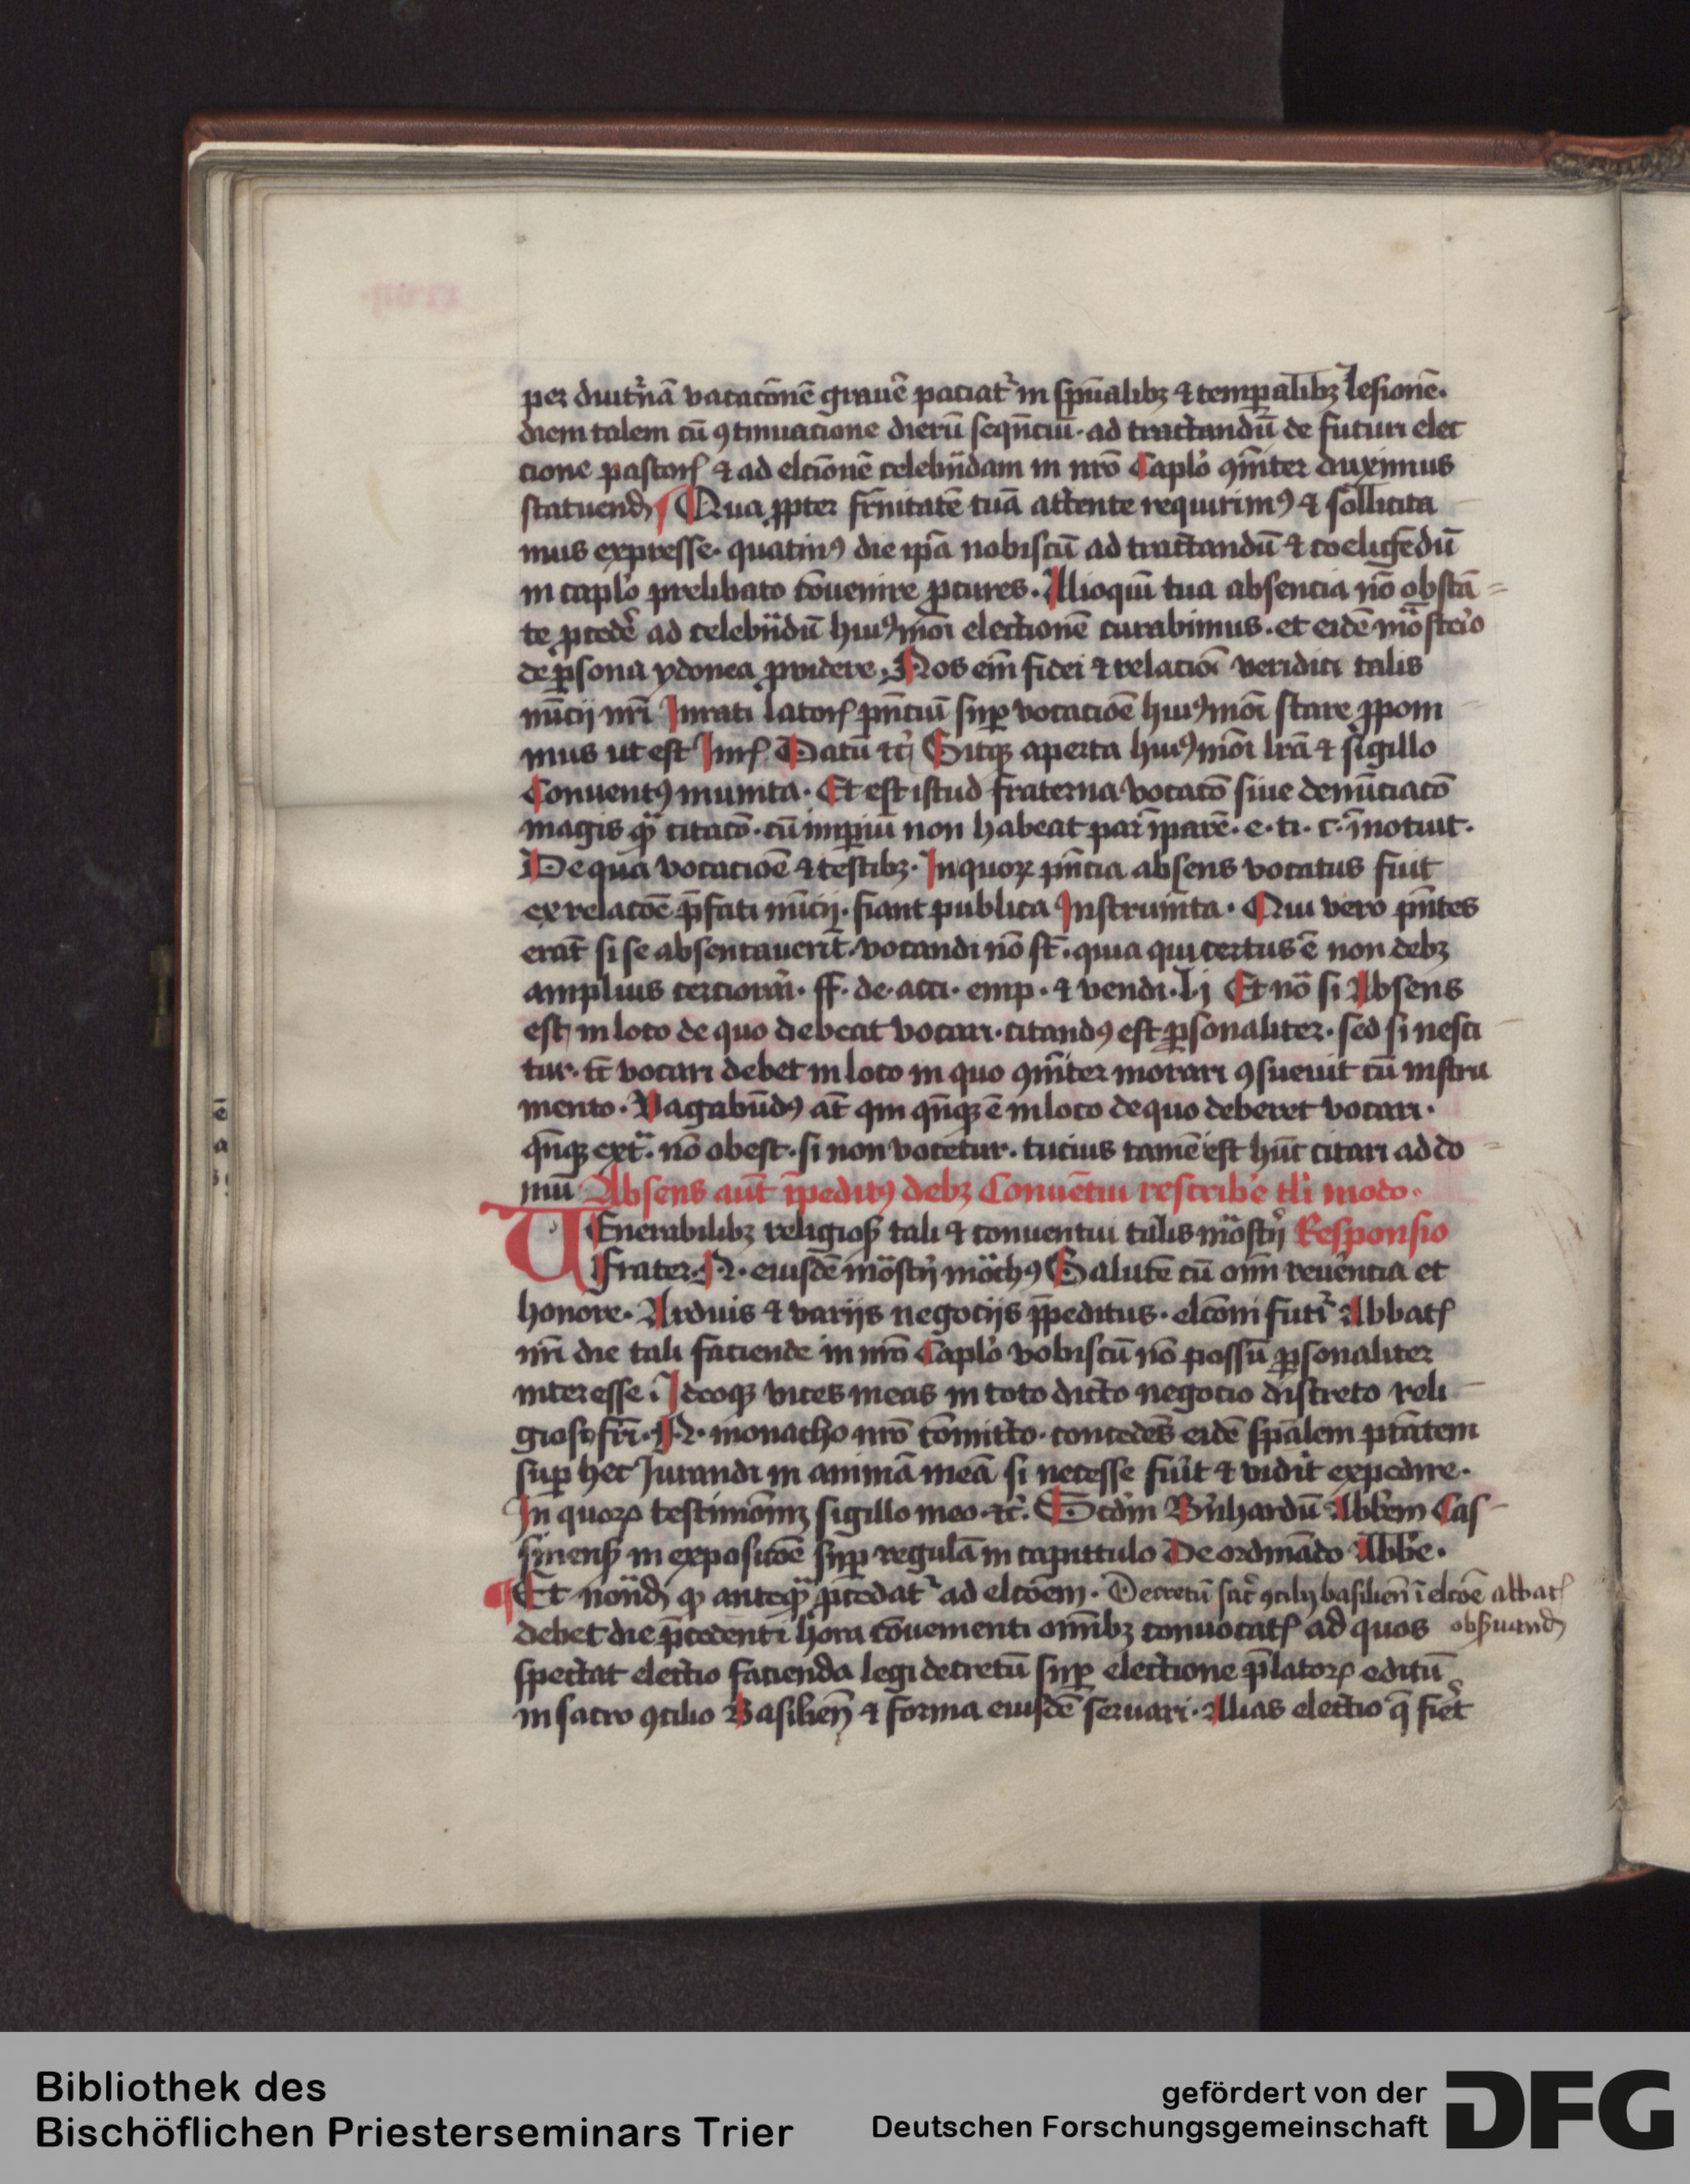 per diut̾nā vacac̄onē grauē paciat᷑ in sp̄ualibꝫ ⁊ temp̲alibꝫ lesionē.
diem talem cū ꝯtinuacione dierū seqn̄ciū· ad tractandū de futuri elec
cione pastorꝭ ⁊ ad elc̄ionē celebr̄ādam in nr̄o Caplo ꝯm̄iter duximus
statuend̄ Qua ꝓpter fr̄nitatē tuā attente requirimꝰ ⁊ sollicita
mus expresse· quatinꝰ die ip̄a nobiscū ad tractandū ⁊ coeligēdū
in caplo prelibato cōuenire ꝓcures. Alioquī tua absencia nō obstā
te ꝓcedē ad celebr̄ādū huiꝰmōi electionē curabimus. et eidē mōsteīo
de ꝑsona ydonea ꝓuidere. Nos em̄ fidei ⁊ relacioī veridici talis
nūcij nr̄i Jurati latorꝭ pn̄ciū suꝑ vocacioē huiꝰmōi stare ꝓponi
mus ut est Jurꝭ Datū ⁊c̄ Sitqꝫ aperta huiꝰmōi lr̄a ⁊ sigillo
Conuentꝰ munita· Et est istud fraterna vocacō siue denūciacō
magis ꝙ̄ citacō· cū imꝑiū non habeat par ī parē· e· ti· c· īnotuit·
De qua vocacioē ⁊ testibꝫ· In quorꝫ pn̄cia absens vocatus fuit
ex relacōe p̄fati nūcij· fiant publica Instrum̄ta· Qui vero pn̄tes
erāt si se absentauerīt· vocandi nō st̄· quia qui certus ē non debꝫ
amplius cerciorari· ff· de· acti· emp· ⁊ vendi· l· j Et nō si Absens
est in loco de quo debeat vocari· citandꝰ est ꝑsonaliter· sed si nesci
tur· tc̄ vocari debet in loco in quo ꝯm̄iter morari ꝯsueuit cū instru
mento· Vagabūdꝰ at̄ qui qn̄qꝫ ē in loco de quo deberet vocari·
qn̄qꝫ ext̄ᵃ· nō obest· si non vocetur· tucius tamē est hūc citari ad do
mū Absens aut̄ īpeditꝰ debꝫ Conuētui rescribe tli modo·
VEnerabilibꝫ religioꝭ tali ⁊ conuentui talis mōstrij Responsio
Frater· N· eiusdē mōstrij mōchꝰ Salutē cū om̄i reuēncia et
honore· Arduis ⁊ varijs negocijs p̄peditus· elcōni futr̄ Abbatꝭ
nr̄i die tali faciende in nr̄o Caplo vobiscū nō possū ꝑsonaliter
interesse Ideoqꝫ vices meas in toto dicto negocio discreto reli
gioso fr̄i· N· monacho nr̄o cōmitto· concedēs eidē sp̄alem ptātem
suꝑ hec Jurandi in animā meā si necesse fuīt ⁊ vidīt expedire·
In quorꝫ testimōiū sigillo meo ⁊c̄· Scd̄m Bn̄hardū Abb̄em Cas
sinensꝭ in exposicōe suꝑ regulā in capittulo De ordinādo Abb̄e·
Et nōnd̄ ꝙ anteqꝫ̄ ꝓcedat᷑ ad elcōem· Decretū sac̄ ꝯcilij basiliēn ī elcōe abbatꝭ
debet die p̄cedenti hora cōuenienti om̄ibꝫ conuocatꝭ ad quos obseruand̄
spectat electio facienda legi decretū suꝑ electione p̄latorꝫ editū
in sacro ꝯcilio Basilien̄ ⁊ forma eiusdē seruari· Alias electio q̄ fiēt
Bibliothek des
Bischöflichen Priesterseminars Trier
gefördert von der
Deutschen Forschungsgemeinschaft
DFG